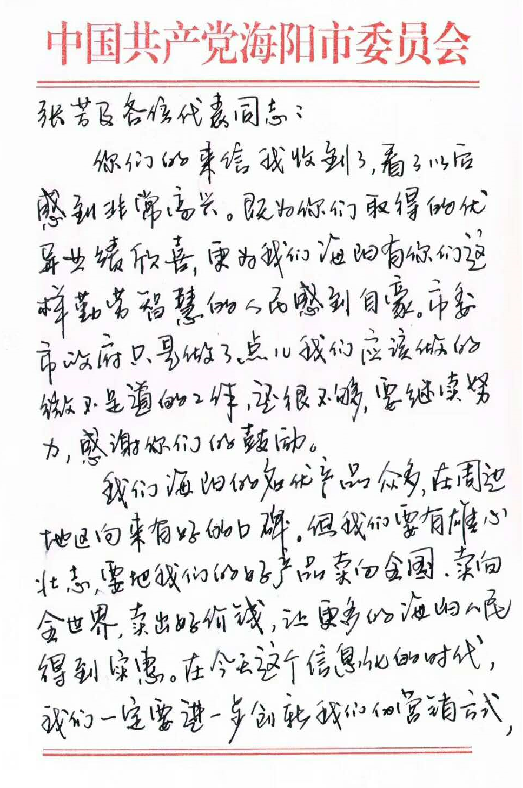 中国共产党海阳市委员会
张芳及各位代表同志：
你们的来信我收到了，看了以后
感到非常高兴。既为你们取得的优
异业绩欣喜，更为我们海阳有你们这
样勤劳智慧的人民感到自豪。市委
市政府只是做了点儿我们应该做的
微不足道的工作，还很不够，要继续努
力，感谢你们的鼓励。
我们海阳的名优产品众多，在周边
地区向来有好的口碑。但我们要有雄心
壮志，要把我们的好产品卖向全国、卖向
全世界，卖出好价钱，让更多的海阳人民
得到实惠。在今天这个信息化的时代，
我们一定要进一步创新我们的营销方式，